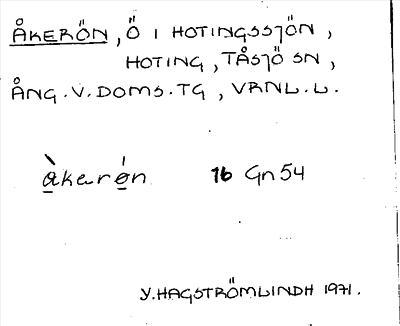 ÅKERÖN, Ö I HOTINGSSJÖN,
HOTING, TÅSJÖ SN,
ÅNG. V. DOMS. TG, VRNL. L.
àkerǿn 16 Gn 54
Y. HAGSTRÖMLINDH 1971.